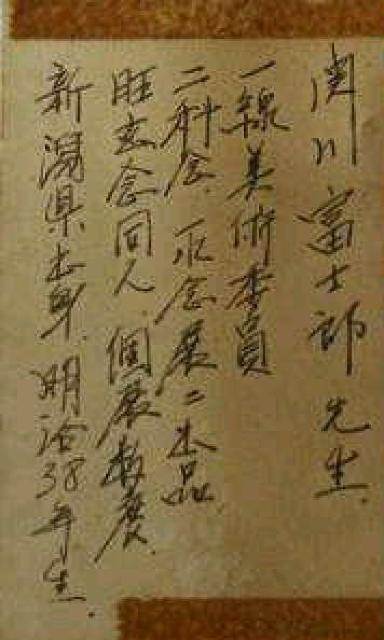 関川富士郎先生
一線美術委員
二科会、一水会展ニ出品、
旺玄会同人、個展数度、
新潟県出身、明治38年生.